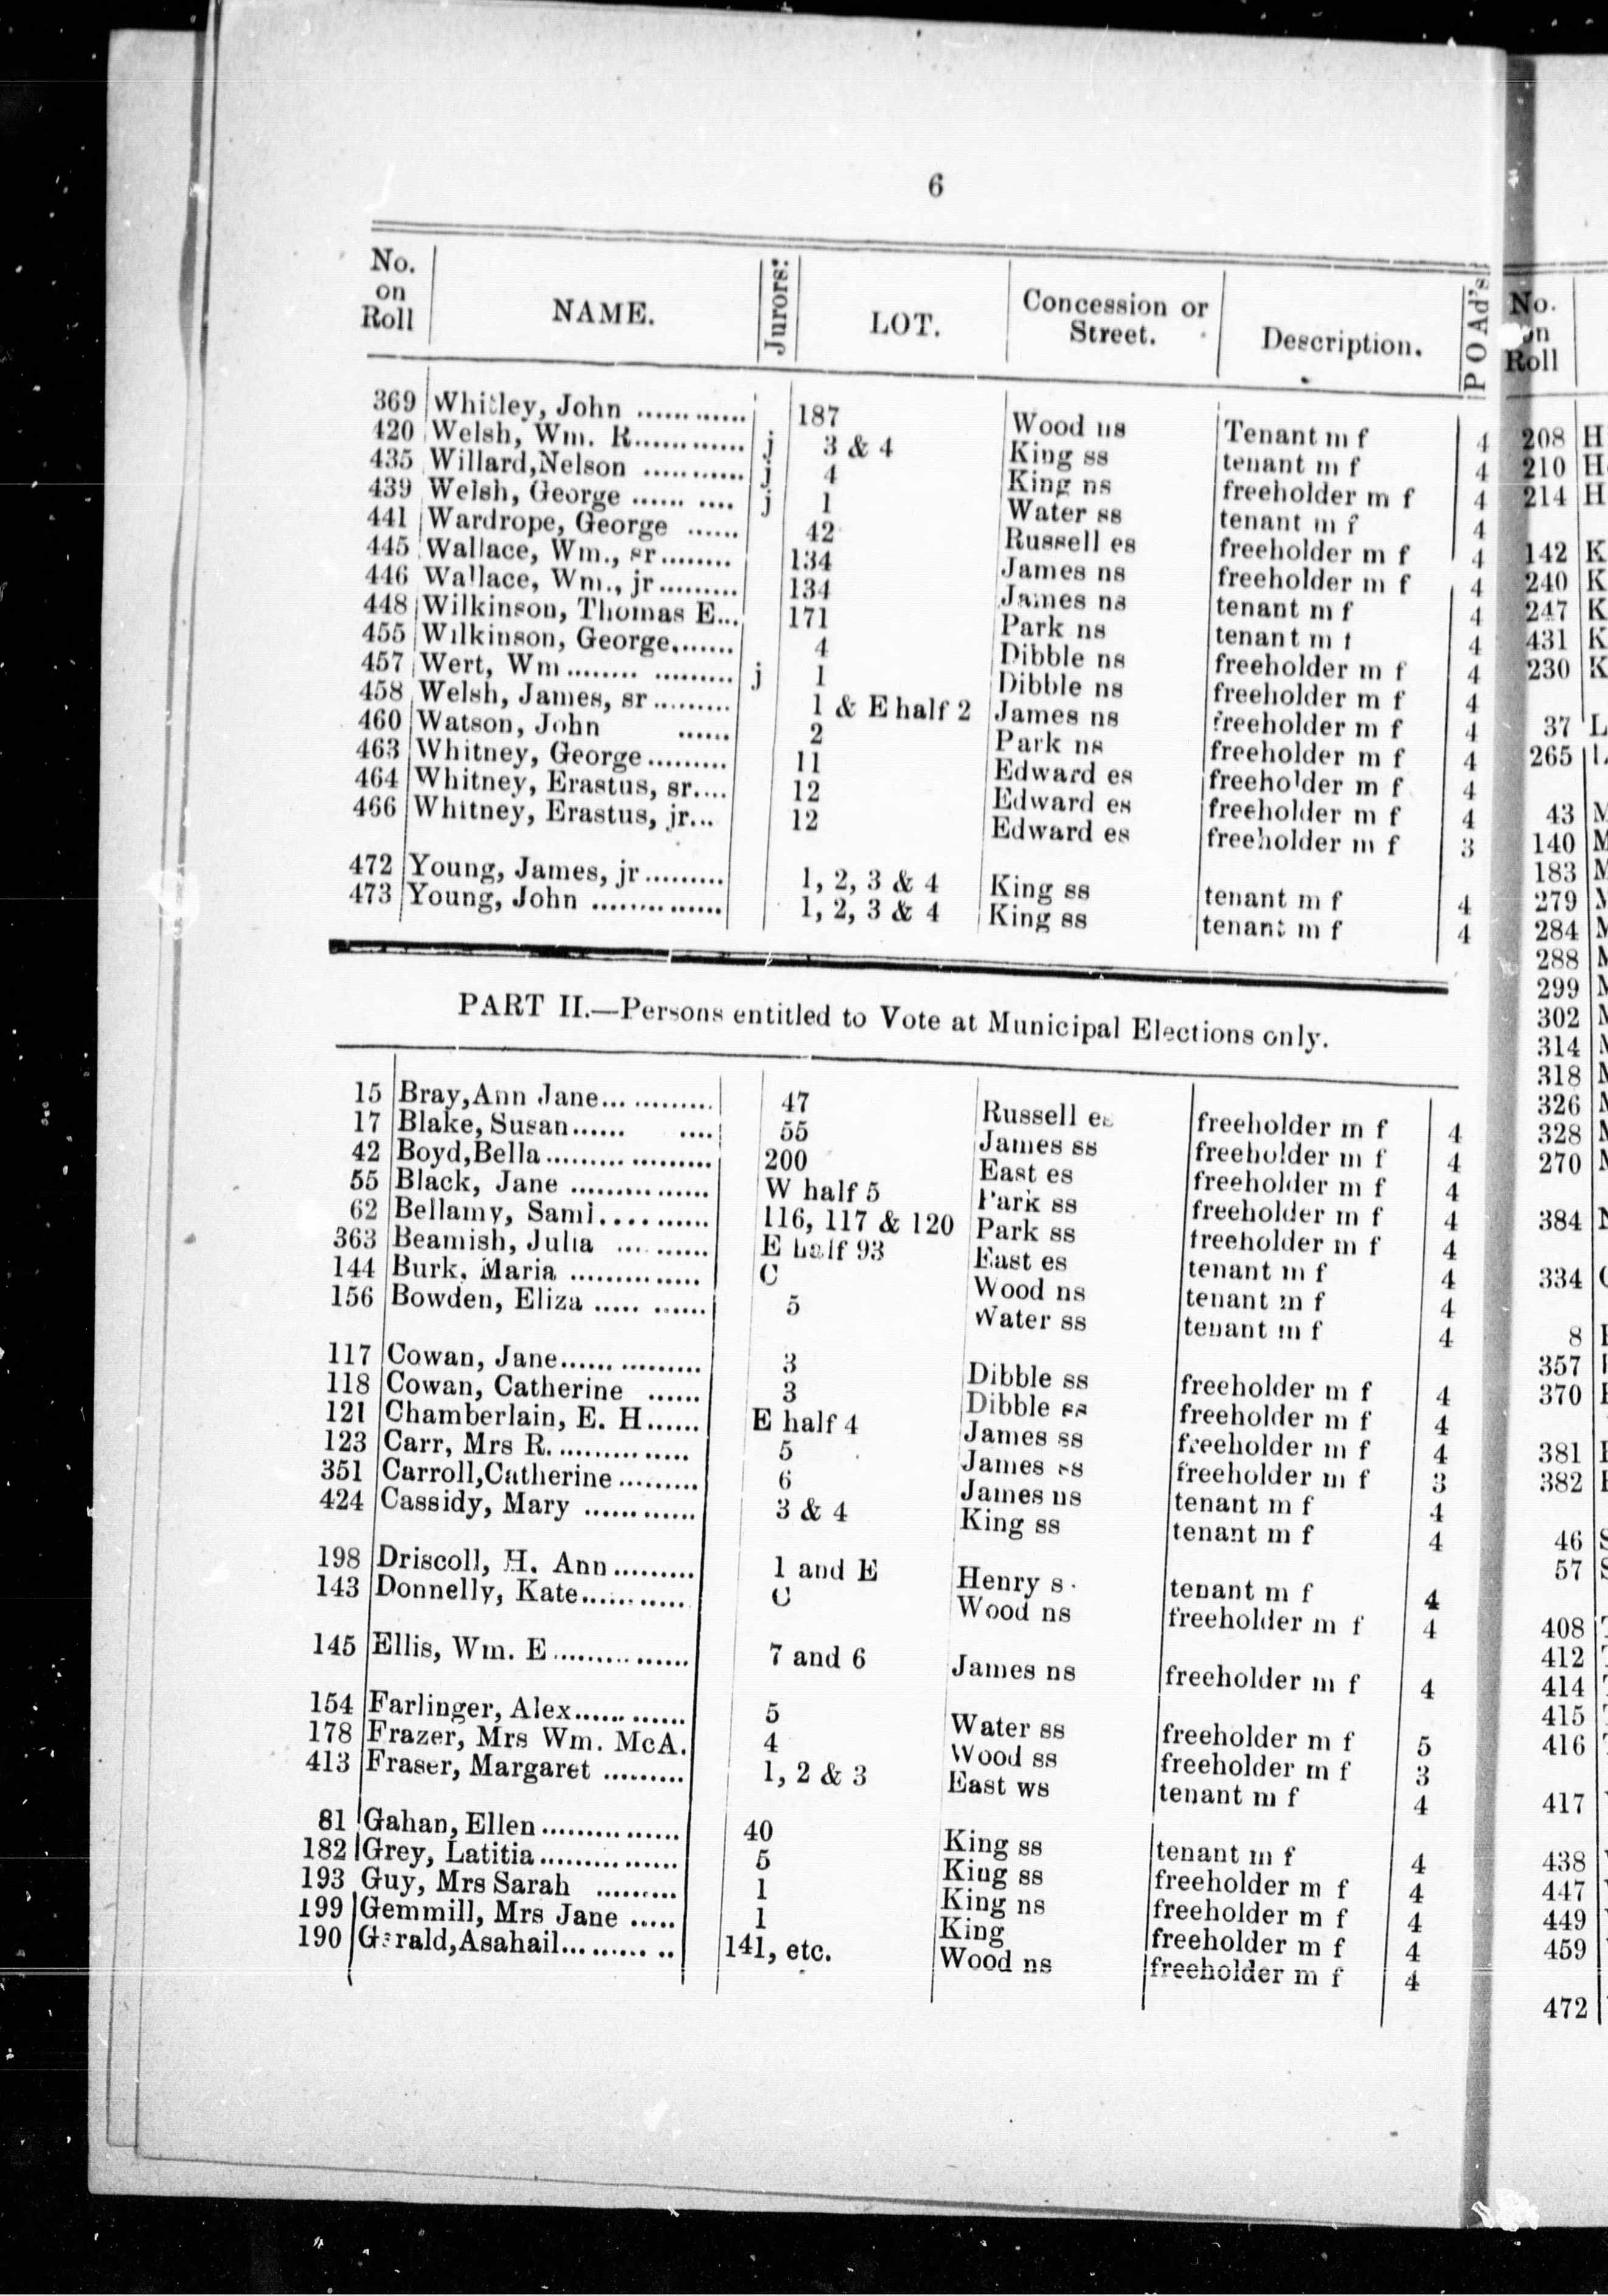 6
No. on Roll NAME. Jurors. LOT. Concession or Street. Description. P O Ad's
369 Whitley, John ............ 187 Wood ns Tenant m f 4
420 Welsh, Wm. R............ j 3 & 4 King ss tenant m f 4
435 Willard,Nelson ........... j 4 King ns freeholder m f 4
439 Welsh, George ....... .... j 1 Water ss tenant m f 4
441 Wardrope, George ...... 42 Russell es freeholder m f 4
445 Wallace, Wm., sr......... 134 James ns freeholder m f 4
446 Wallace, Wm., jr.......... 134 James ns tenant m f 4
448 Wilkinson, Thomas E... 171 Park ns tenant m f 4
455 Wilkinson, George....... 4 Dibble ns freeholder m f 4
457 Wert, Wm......... .......... j 1 Dibble ns freeholder m f 4
458 Welsh, James, sr ......... 1 & E half 2 James ns freeholder m f 4
460 Watson, John ...... 2 Park ns freeholder m f 4
463 Whitney, George ......... 11 Edward es freeholder m f 4
464 Whitney, Erastus, sr.... 12 Edward es freeholder m f 4
466 Whitney, Erastus, jr... 12 Edward es freeholder m f 3
472 Young, James, jr ......... 1, 2, 3 & 4 King ss tenant m f 4
473 Young, John ............... 1, 2, 3 & 4 King ss tenant m f 4
PART II.—Persons entitled to Vote at Municipal Elections only.
15 Bray,Ann Jane... .......... 47 Russell es freeholder m f 4
17 Blake, Susan...... .... 55 James ss freeholder m f 4
42 Boyd,Bella................... 200 East es freeholder m f 4
55 Black, Jane ................ W half 5 Park ss freeholder m f 4
62 Bellamy, Saml........... 116, 117 & 120 Park ss freeholder m f 4
363 Beamish, Julia .......... E half 93 East es tenant m f 4
144 Burk, Maria ............... C Wood ns tenant m f 4
156 Bowden, Eliza ..... ...... 5 Water ss tenant m f 4
117 Cowan, Jane................ 3 Dibble ss freeholder m f 4
118 Cowan, Catherine ...... 3 Dibble ss freeholder m f 4
121 Chamberlain, E. H...... E half 4 James ss freeholder m f 4
123 Carr, Mrs R................ 5 James ss freeholder m f 3
351 Carroll,Catherine ......... 6 James ns tenant m f 4
424 Cassidy, Mary ............ 3 & 4 King ss tenant m f 4
198 Driscoll, H. Ann ......... 1 and E Henry s tenant m f 4
143 Donnelly, Kate............ C Wood ns freeholder m f 4
145 Ellis, Wm. E ............... 7 and 6 James ns freeholder m f 4
154 Farlinger, Alex............ 5 Water ss freeholder m f 5
178 Frazer, Mrs Wm. McA. 4 Wood ss freeholder m f 3
413 Fraser, Margaret ......... 1, 2 & 3 East ws tenant m f 4
81 Gahan, Ellen ............... 40 King ss tenant m f 4
182 Grey, Latitia ............... 5 King ss freeholder m f 4
193 Guy, Mrs Sarah ......... 1 King ns freeholder m f 4
199 Gemmill, Mrs Jane ..... 1 King freeholder m f 4
190 Gerald,Asahail.......... .. 141, etc. Wood ns freeholder m f 4
No. on Roll
208 H
210 H
214 H
142 K
240 K
247 K
431 K
230 K
37 L
265 L
43 M
140 M
183 M
279 M
284 M
288 M
299 M
302 M
314 M
318 M
326 M
328 M
270 M
384 N
334
8
357
370
381
382
46 S
57 S
408
412
414
415
416
417
438
447
449
459
472